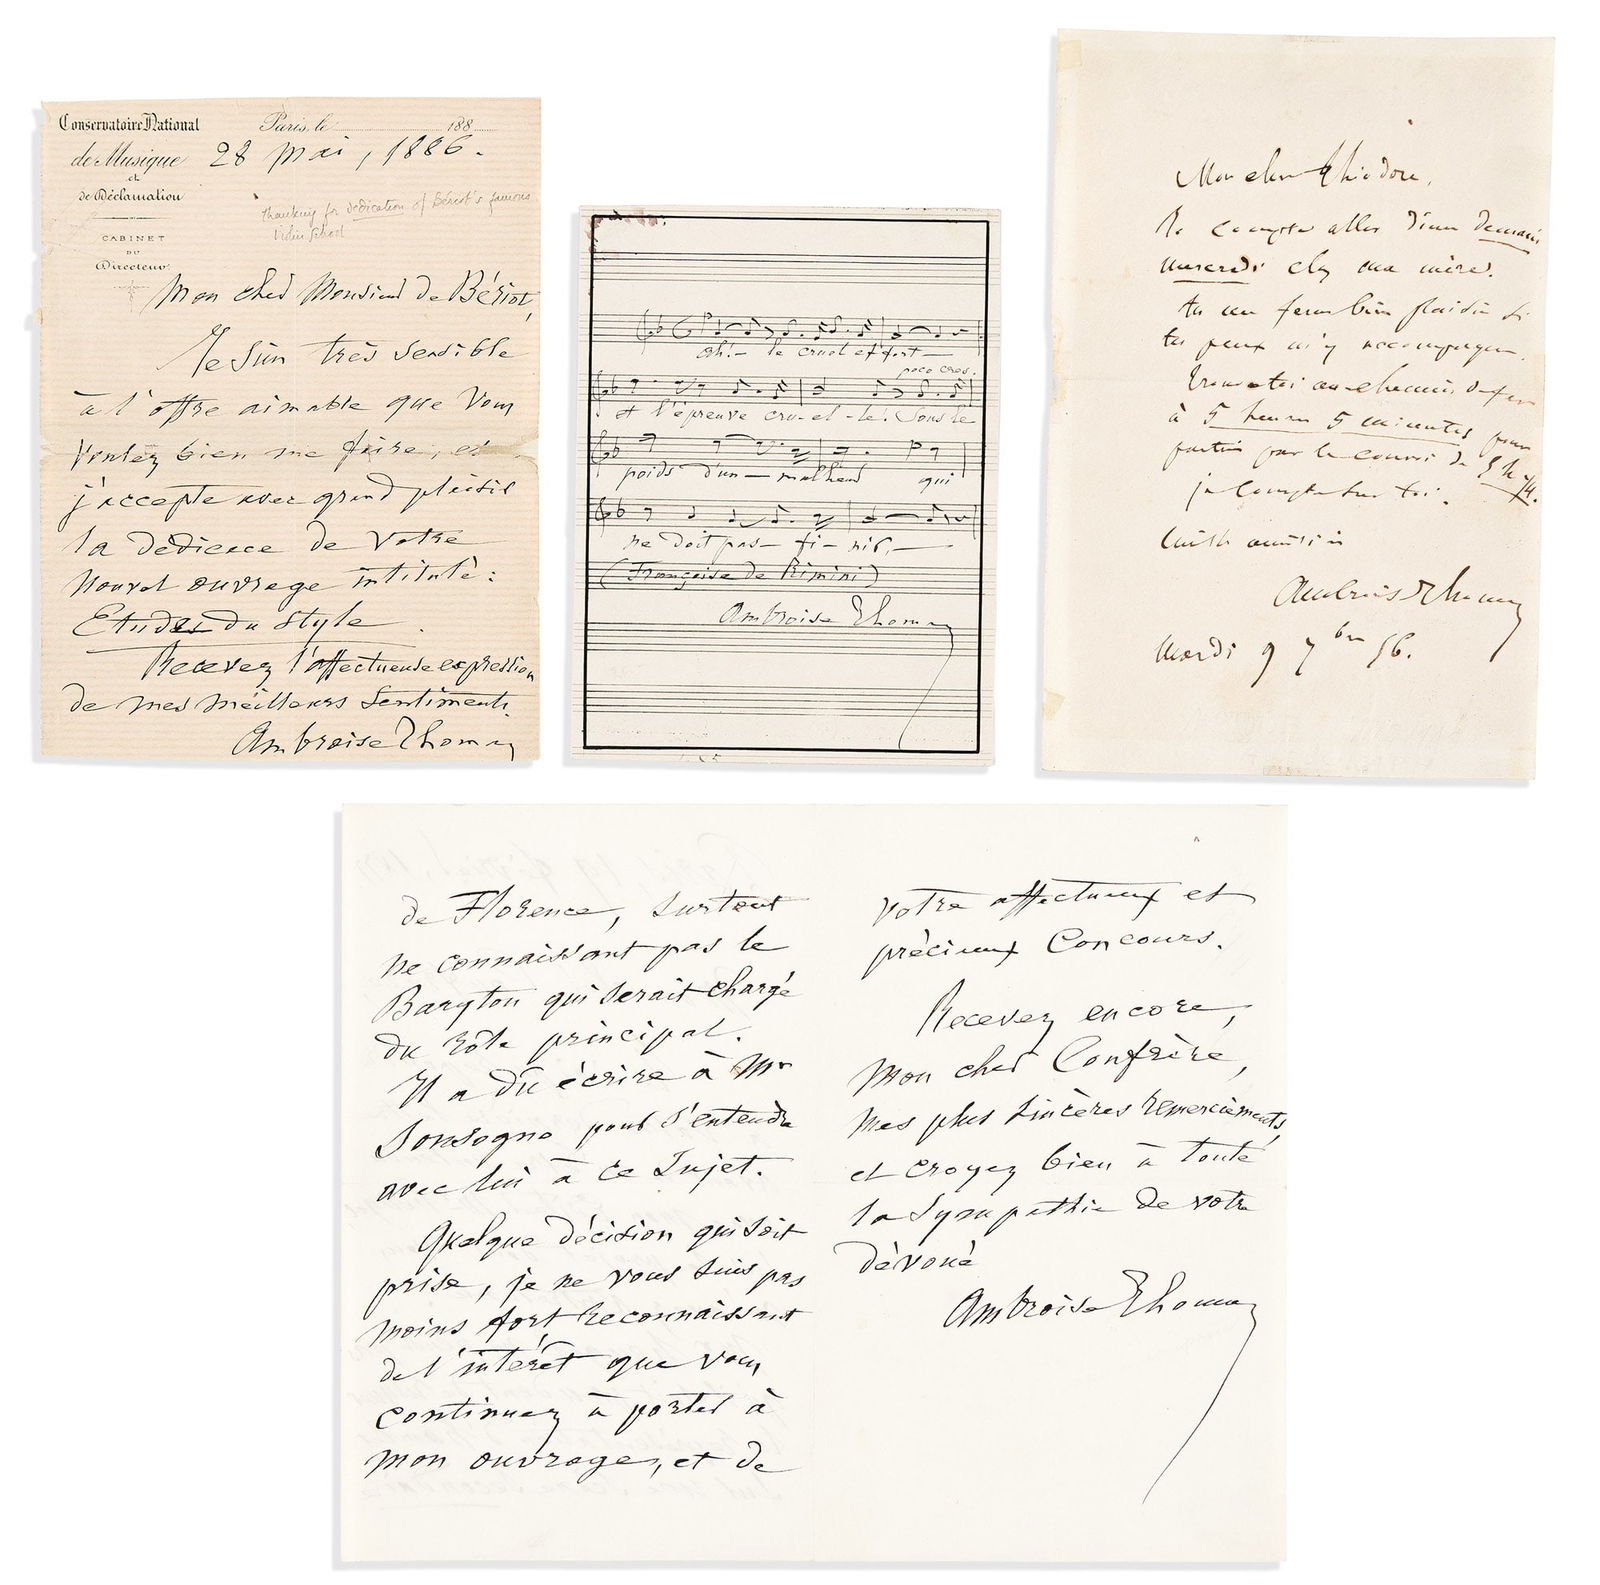 Conservatoire National
de Musique
et
de Déclamation
CABINET
DU
Directeur
Paris, le 188
28 Mai, 1886.
thanking for dedication of Bériot's famous
Violin School
Mon cher Monsieur de Bériot,
Je suis très sensible
à l'offre aimable que vous
voulez bien me faire, et
j'accepte avec grand plaisir
la dédicace de votre
nouvel ouvrage intitulé:
Etudes du Style.
Recevez l'affectueuse expression
de mes meilleurs sentiments.
Ambroise Thomas
Ah! — le cruel effort —
poco cres.
et l'épreuve cru-el-le! Sous le
poids d'un — malheur qui
ne doit pas — fi-nir, —
(Françoise de Rimini)
Ambroise Thomas
Mon cher Théodore,
Je compte aller diner demain
mercredi chez ma mère.
tu me feras bien plaisir si
tu peux m'y accompagner.
Trouve toi au chemin de fer
à 5 heures 5 minutes pour
partir par le convoi de 5 h 1/4.
je compte sur toi.
Ambroise Thomas
Mardi 9 7bre 56.
de Florence, surtout
ne connaissant pas le
Baryton qui serait chargé
du rôle principal.
Il a dû écrire à Mr
Sonzogno pour s'entendre
avec lui à ce sujet.
Quelque décision qui soit
prise, je ne vous suis pas
moins fort reconnaissant
de l'intérêt que vous
continuez à porter à
mon ouvrage, et de
votre affectueux et
précieux Concours.
Recevez encore,
mon cher Confrère,
mes plus sincères remerciements,
et croyez bien à toute
la sympathie de votre
dévoué
Ambroise Thomas